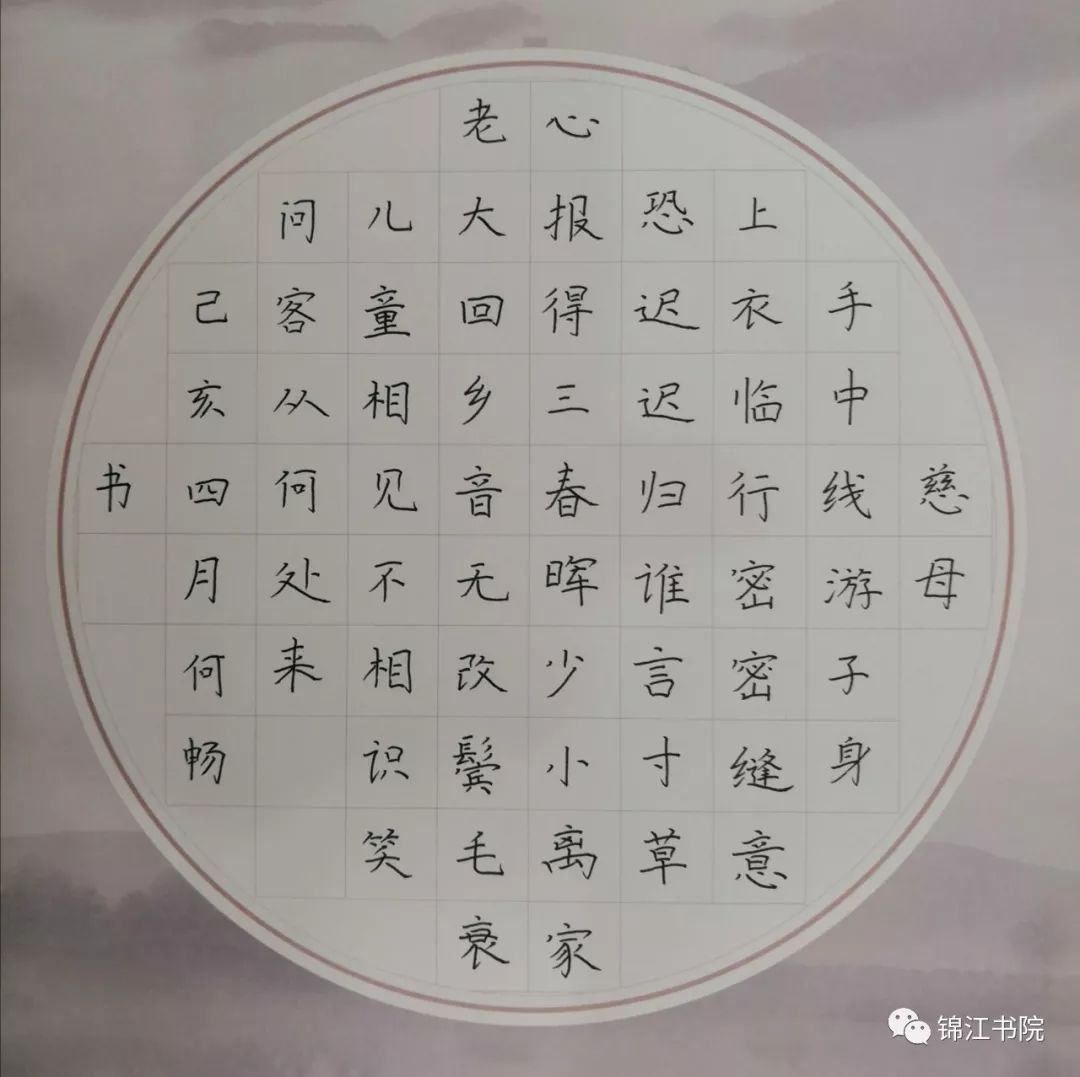 慈母
手中线游子身
上衣临行密密缝意
恐迟迟归谁言寸草
心报得三春晖少小离家
老大回乡音无改鬓毛衰
儿童相见不相识笑
问客从何处来
己亥四月何畅
书
锦江书院